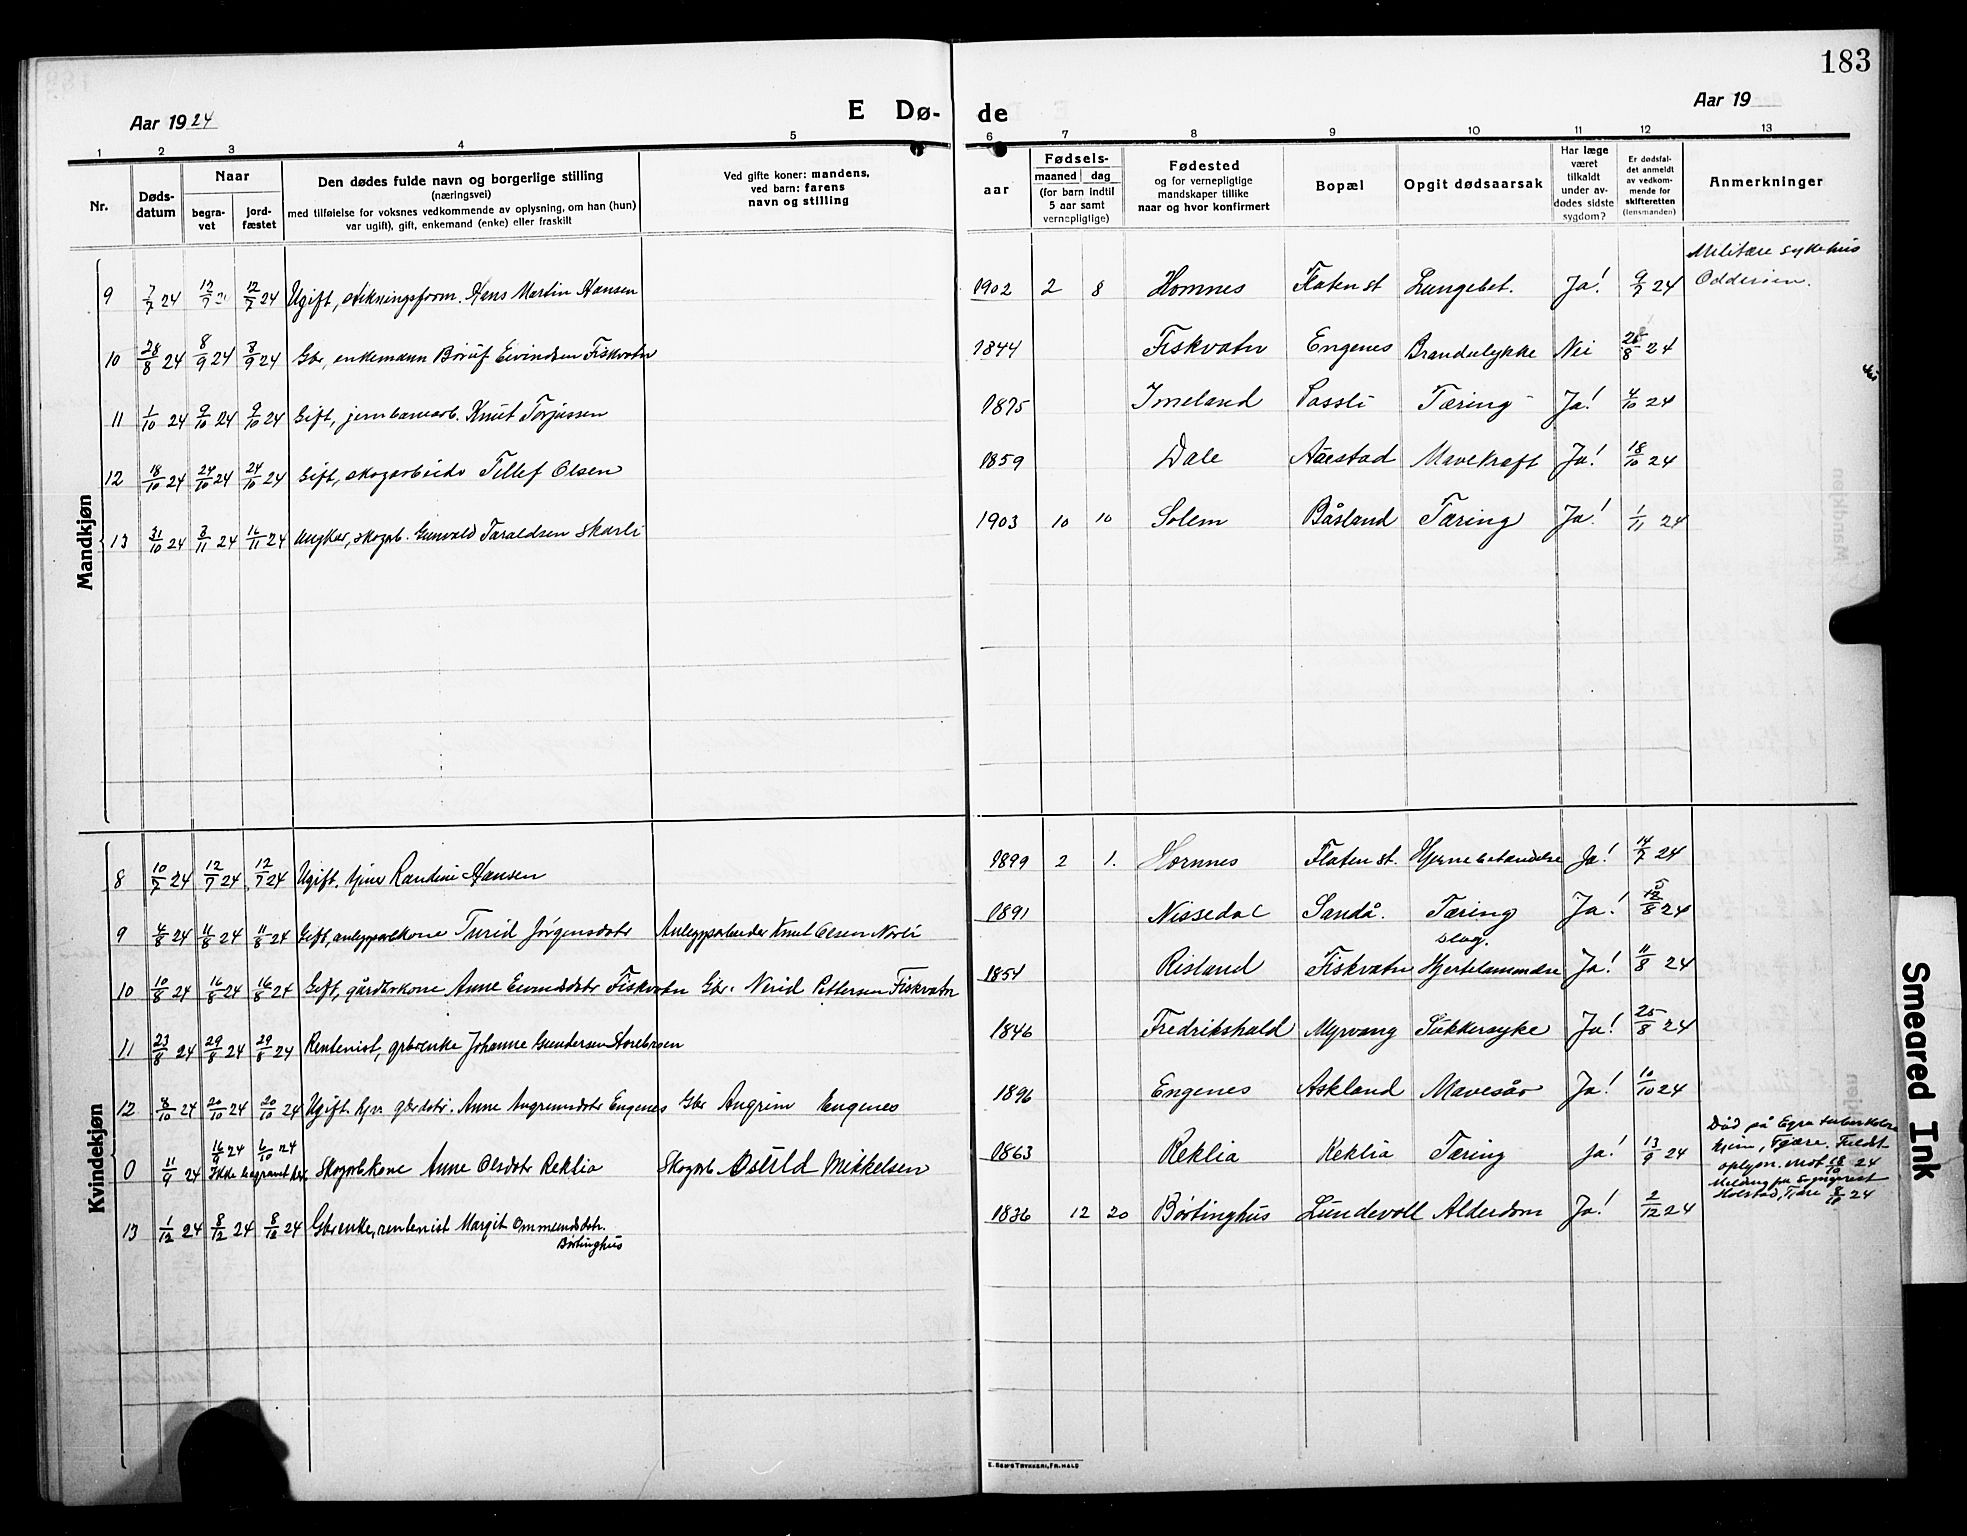 183
Aar 1924
E Dø-
de
Aar 19
1 2 3 4 5 6 7 8 9 10 11 12 13
Nr.
Døds-
datum
Naar
begra-
vet
jord-
fæstet
Den dødes fulde navn og borgerlige stilling
(næringsvei)
med tilføielse for voksnes vedkommende av oplysning, om han (hun)
var ugift), gift, enkemand (enke) eller fraskilt
Ved gifte koner: mandens,
ved barn: farens
navn og stilling
aar
Fødsels-
maaned dag
(for barn indtil
5 aar samt
vernepligtige)
Fødested
og for vernepligtige
mandskaper tillike
naar og hvor konfirmert
Bopæl
Opgit dødsaarsak
Har læge
været
tilkaldt
under av-
dødes sidste
sygdom?
Er dødsfal-
det anmeldt
av vedkom-
mende for
skifteretten
(lensmanden)
Anmerkninger
Mandkjøn
9 7/7 24 12/7 12/7 24 Ugift, Hans Martin Hansen 1902 2 8 Hornnes Flaten st Lungebet. Ja! 9/7 24 Militære sykehus
Odderøen.
10 28/8 24 8/9 24 8/9 24 Gbr, enkemann Eivindsen Fiskvatn 1844 Fiskvatn Engenes Brandulykke Nei 8 24
11 1/10 24 9/10 24 9/10 24 Gift, jernbanearb. Knut Torjussen 1875 Imeland Tæring Ja! 4/10 24
12 18/10 24 24/10 24 24/10 24 Gift, skogarbeider Tellef Olsen 1859 Dale Aaestad Mavekræft Ja! 18/10 24
13 31/10 24 3/11 24 16/11 24 Ungkar, skogarb. Gunvald Taraldsen Skarli 1903 10 10 Solem Båsland Tæring Ja! 1/11 24
Kvindekjøn
8 10/7 24 12/7 24 12/7 24 Ugift. tjener Randine Hansen 1899 2 1. Hornnes Flaten st. Hjernebetændelse Ja! 14/7 24
9 4/8 24 11/8 24 11/8 24 Gift, Turid Jörgensdotr Anlegsarbeider Knut Olsen Norli 1891 Nissedal Sandå. Tæring Ja! 8 24
10 10/8 24 16/8 24 16/8 24 Gift, gårdbrkone Anne Eivindsdotr Fiskvatn Gbr. Nerid Pettersen Fiskvatn 1854 Risland Fiskvatn slag. Hjertelammelse Ja! 11/8 24
11 23/8 24 29/8 24 29/8 24 Rentenist, gbrenke Johanne Gundersen 1846 Fredrikshald Myrvang Sukkersyke Ja! 25/8 24
12 8/10 24 20/10 24 20/10 24 Ugift. gbrdotr. Anne Angrimsdotr Engenes Gbr Angrim Engenes 1896 Engenes Askland Mavesår Ja! 10/10 24
0 11/9 24 16/9 24 6/10 24 Ikke begravet her, Skogarbkone Anne Olsdotr Reklia Skogarb Mikkelsen 1863 Reklia Reklia Tæring Ja! 13/9 24 Död på tuberkulose
hjem, Fjære.
oplysn. mot. 18/10 24
Melding fra Sogneprest
Holstad, Fjære 24
13 1/12 24 8/12 24 8/12 24 Gbrenke, rentenist Margit Ommundsdtr.
Börtinghus 1836 12 20 Börtinghus Lundevoll Alderdom Ja! 2/12 24
E. SEM'S TRYKKERI, FR.HALD
Smeared Ink